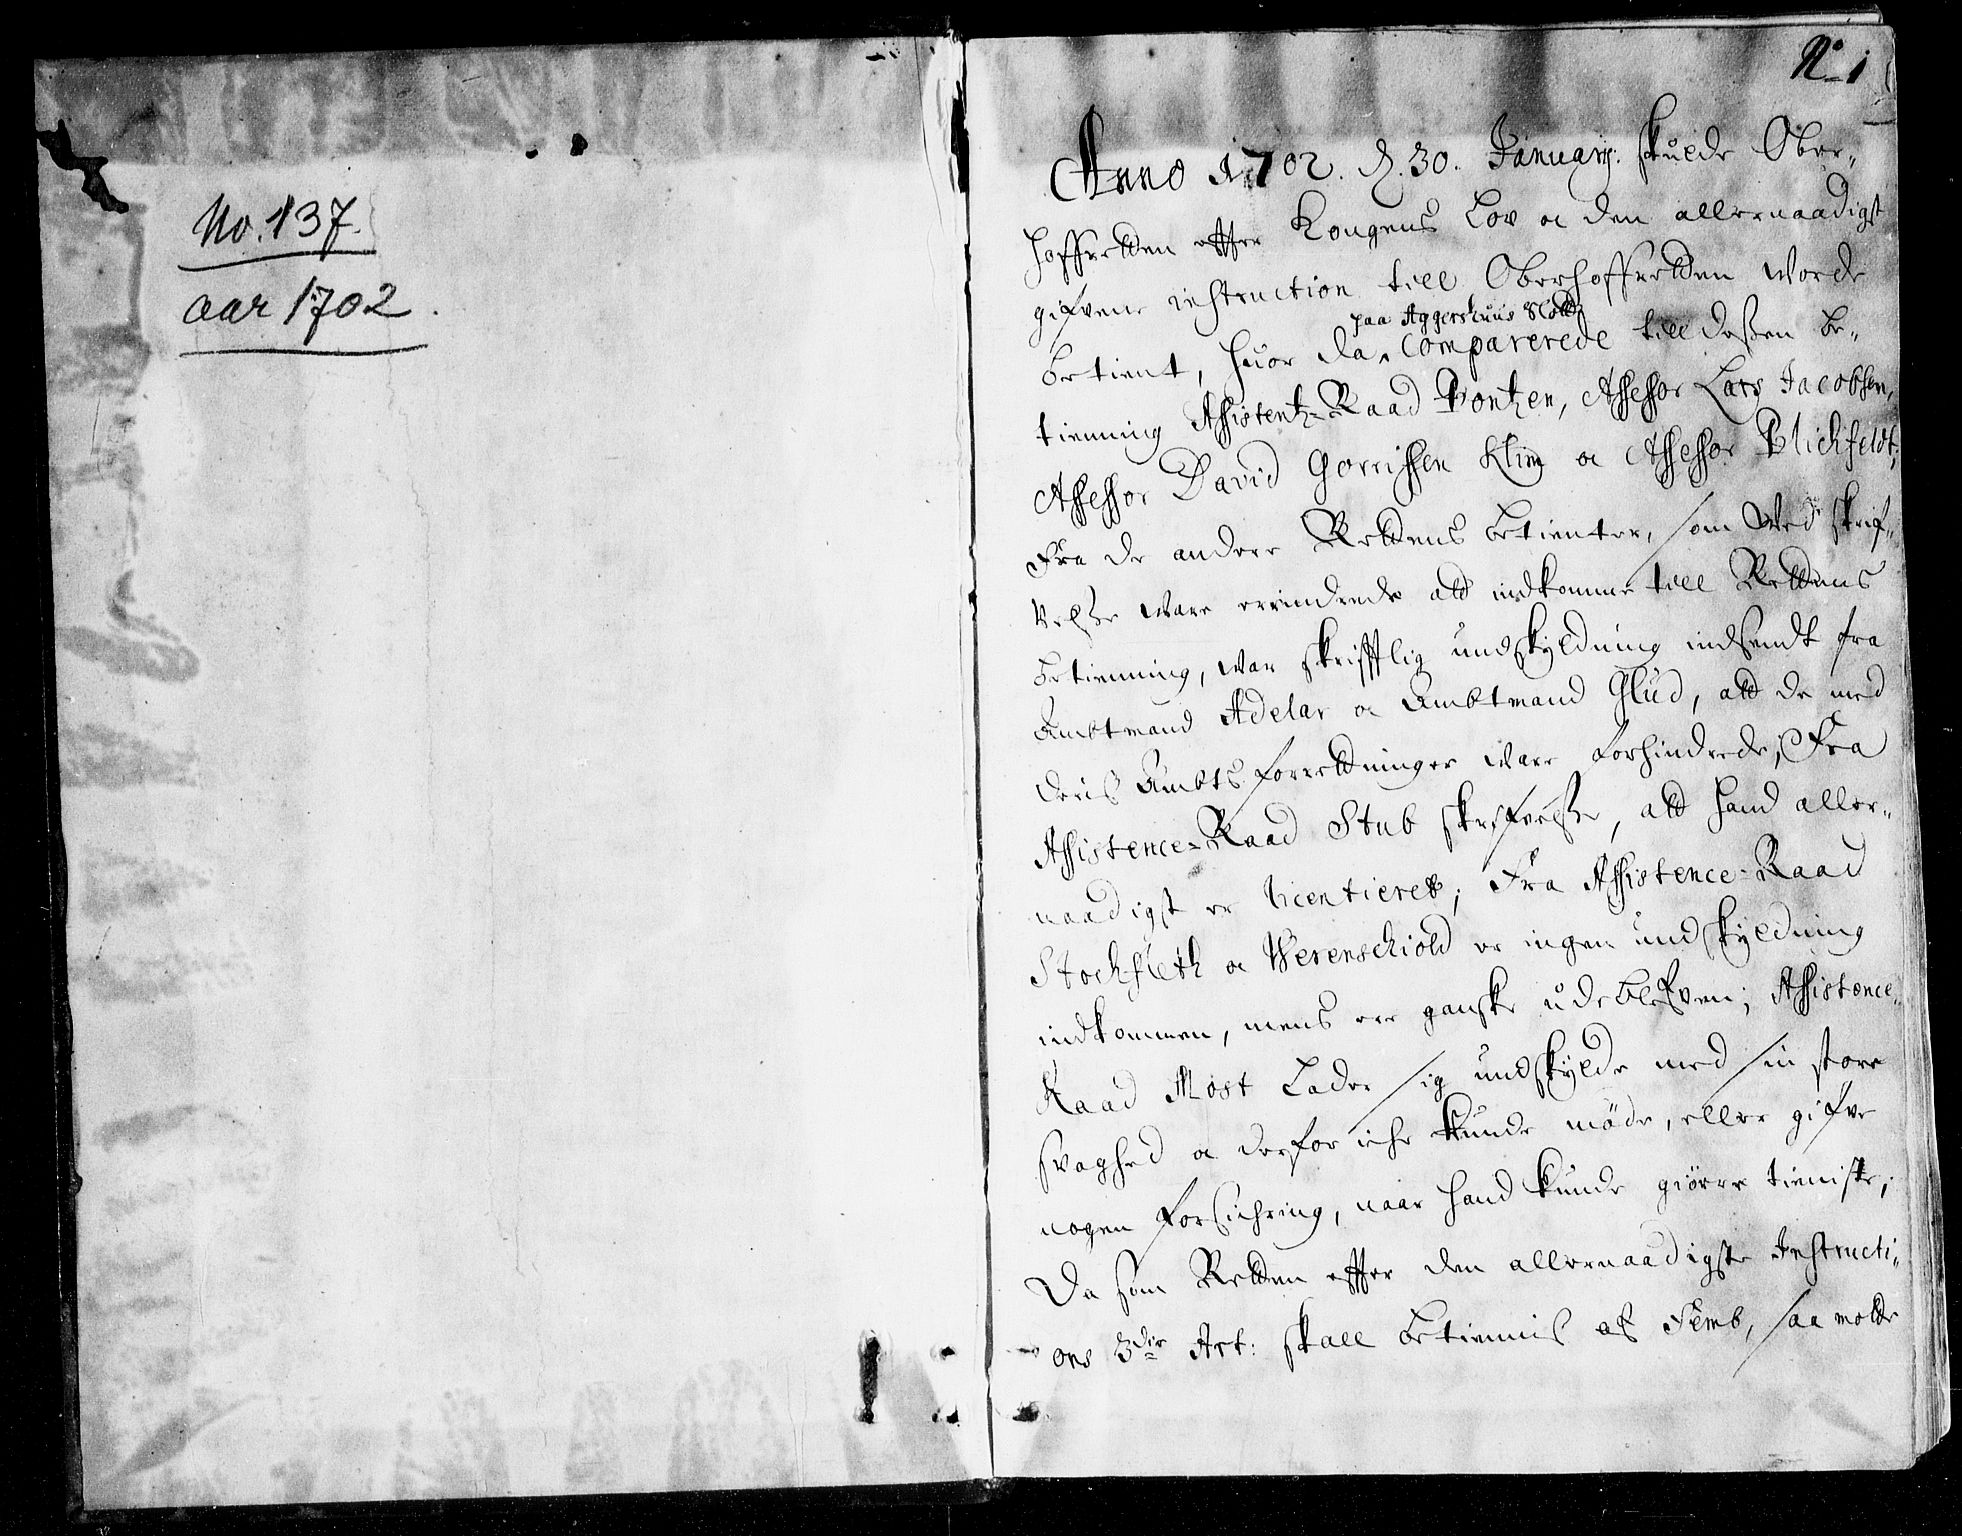 No. 137.
aar 1702.
No 1
Anno 1702. d. 30. Januarij. skulde Ober-
hoffretten efter Kongens Lov oc den allernaadigst
gifvene instruction till Oberhoffretten worde
paa Aggershuus Slott
betient, huor da comparerede till dessen be-
tienning Assistentz-Raad Bontzen, Assessor Lars Jacobsen,
Assessor David Gorrissen Klim oc Assessor Blichfeldt;
Fra de andre Rettens betienter, som Wed skrif-
velse ware erindrede att indkomme till Rettens
betienning, war skrifftlig undskyldning indsendt fra
Ambtmand Adelar oc Ambtmand Glud, att de med
deris Ambts forretninger ware forhindrede, Fra
Assistence-Raad Stub skrifvelse, att hand aller-
naadigst er licentieret; Fra Assistence-Raad
Stochfleth oc Werenschiold er ingen undskyldning
indkommen, mens ere ganske udeblefven; Assistence-
Raad Most Lader sig undskylde med sin store
svaghed oc derfor iche kunde møde, eller gifve
nogen forsichring, naar hand kunde giørre tieniste,
Da som Retten efter den allernaadigste Instructi-
ons 3die Art: skall betiennis af Femb, saa motte